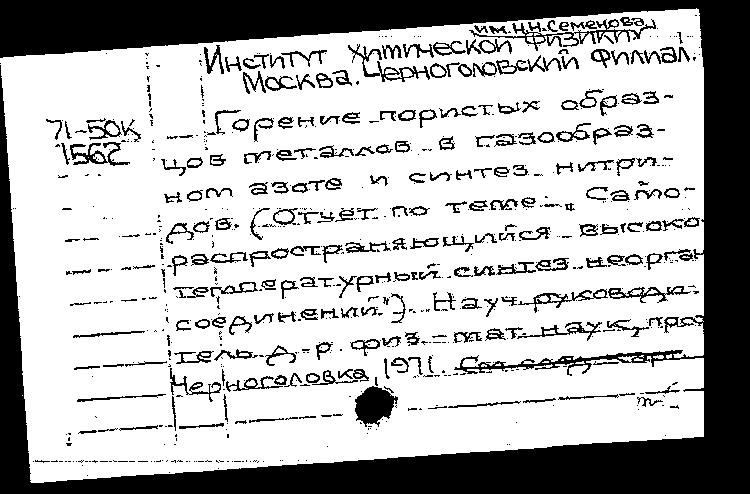 им. Н.Н. Семенова
Институт химической физики
Москва. Черноголовский филиал.
71-50К
1562
Горение пористых образ-
цов металлов в газообраз-
ном азоте и синтез нитри-
дов. (Отчет по теме: „Само-
распространяющийся высоко-
температурный синтез неорган
соединений"). Науч. руководи-
тель д-р физ-мат. наук, проф
Черноголовка, 1971. См. след. карт.